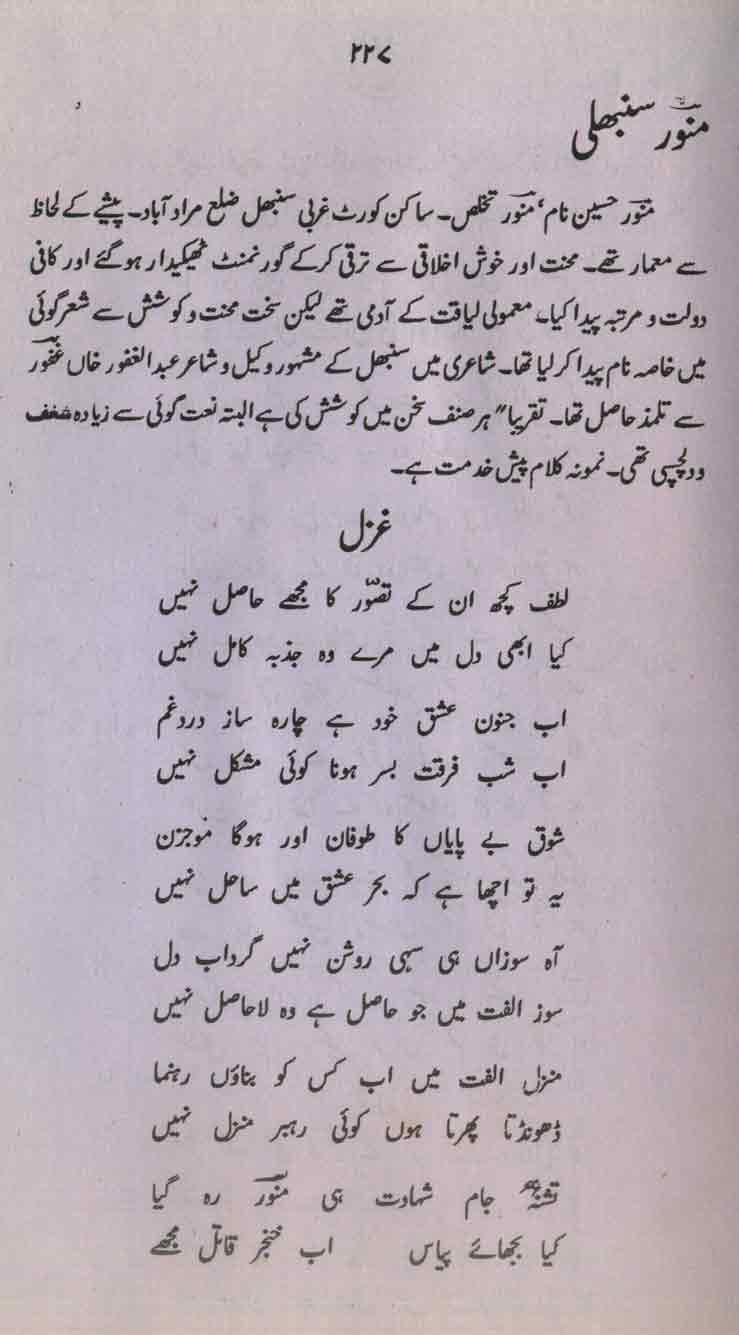 ۲۲۷
منور سنبھلی
منور حسین نام، منور تخلص۔ ساکن کورٹ غربی سنبھل ضلع مراد آباد۔ پیشے کے لحاظ
سے معمار تھے۔ محنت اور خوش اخلاقی سے ترقی کرکے گورنمنٹ ٹھیکیدار ہوگئے اور کافی
دولت و مرتبہ پیدا کیا۔ معمولی لیاقت کے آدمی تھے لیکن سخت محنت و کوشش سے شعرگوئی
میں خاصہ نام پیدا کرلیا تھا۔ شاعری میں سنبھل کے مشہور وکیل و شاعر عبدالغفور خاں غفور
سے تلمذ حاصل تھا۔ تقریبا" ہر صنف سخن میں کوشش کی ہے البتہ نعت گوئی سے زیادہ شغف
و دلچسپی تھی۔ نمونہ کلام پیش خدمت ہے۔
غزل
لطف کچھ ان کے تصوّر کا مجھے حاصل نہیں
کیا ابھی دل میں مرے وہ جذبہ کامل نہیں
اب جنون عشق خود ہے چارہ ساز دردغم
اب شب فرقت بسر ہونا کوئی مشکل نہیں
شوق بے پایاں کا طوفان اور ہوگا موجزن
یہ تو اچھا ہے کہ بحر عشق میں ساحل نہیں
آہ سوزاں ہی سہی روشن نہیں گرداب دل
سوز الفت میں جو حاصل ہے وہ لاحاصل نہیں
منزل الفت میں اب کس کو بناؤں رہنما
ڈھونڈتا پھرتا ہوں کوئی رہبر منزل نہیں
تشنہ جام شہادت ہی منور رہ گیا
کیا بجھائے پیاس اب خنجر قاتل مجھے